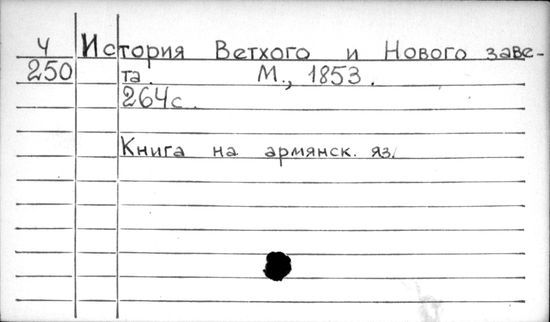 Ч История Ветхого и Нового заве-
250 та. М., 1853.
264с.
Книга на армянск. яз.